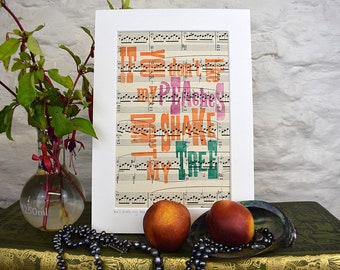 IF YOU don't like
my PEACHES
DON'T SHAKE
MY TREE